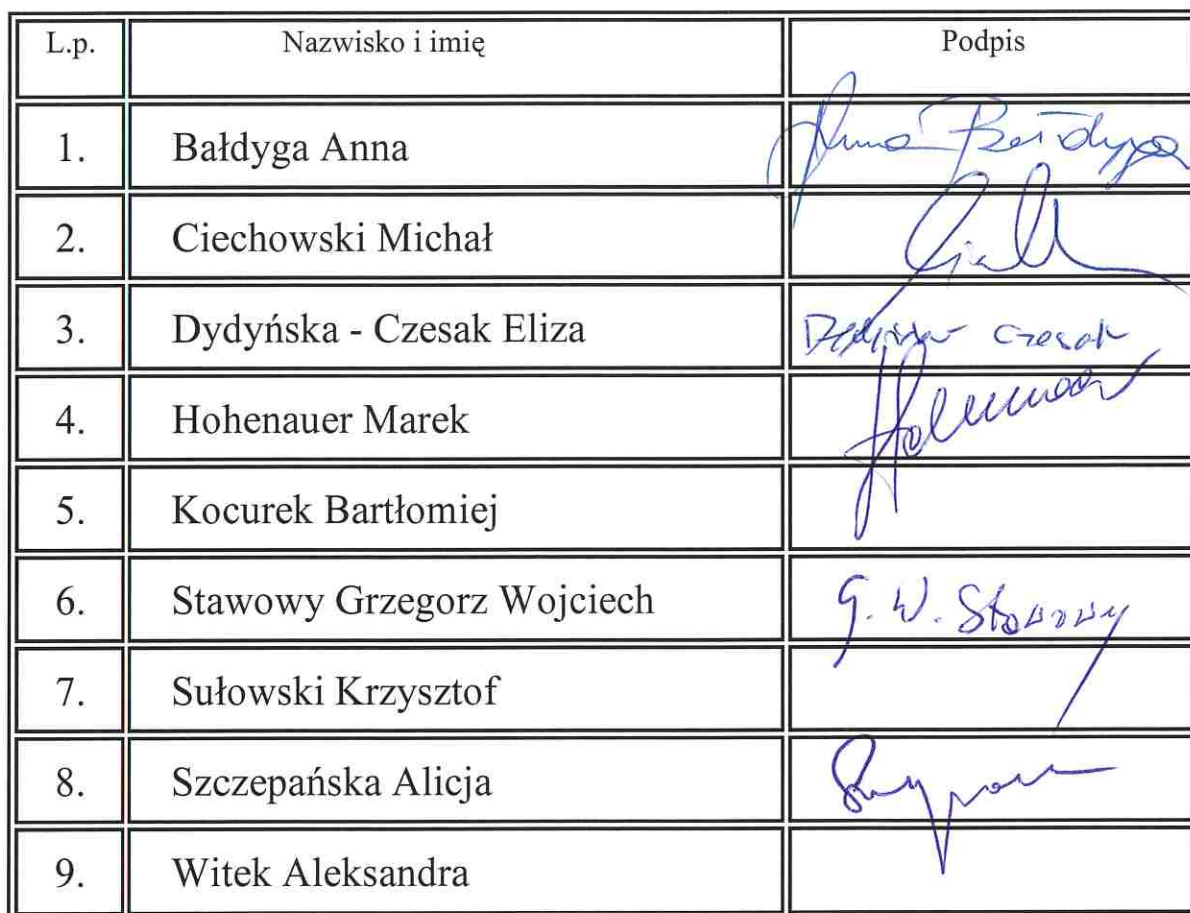 L.p. Nazwisko i imię Podpis
1. Bałdyga Anna Anna Bałdyga
2. Ciechowski Michał
3. Dydyńska - Czesak Eliza Dydyńska Czesak
4. Hohenauer Marek
5. Kocurek Bartłomiej
6. Stawowy Grzegorz Wojciech G. W. Stawowy
7. Sułowski Krzysztof
8. Szczepańska Alicja
9. Witek Aleksandra